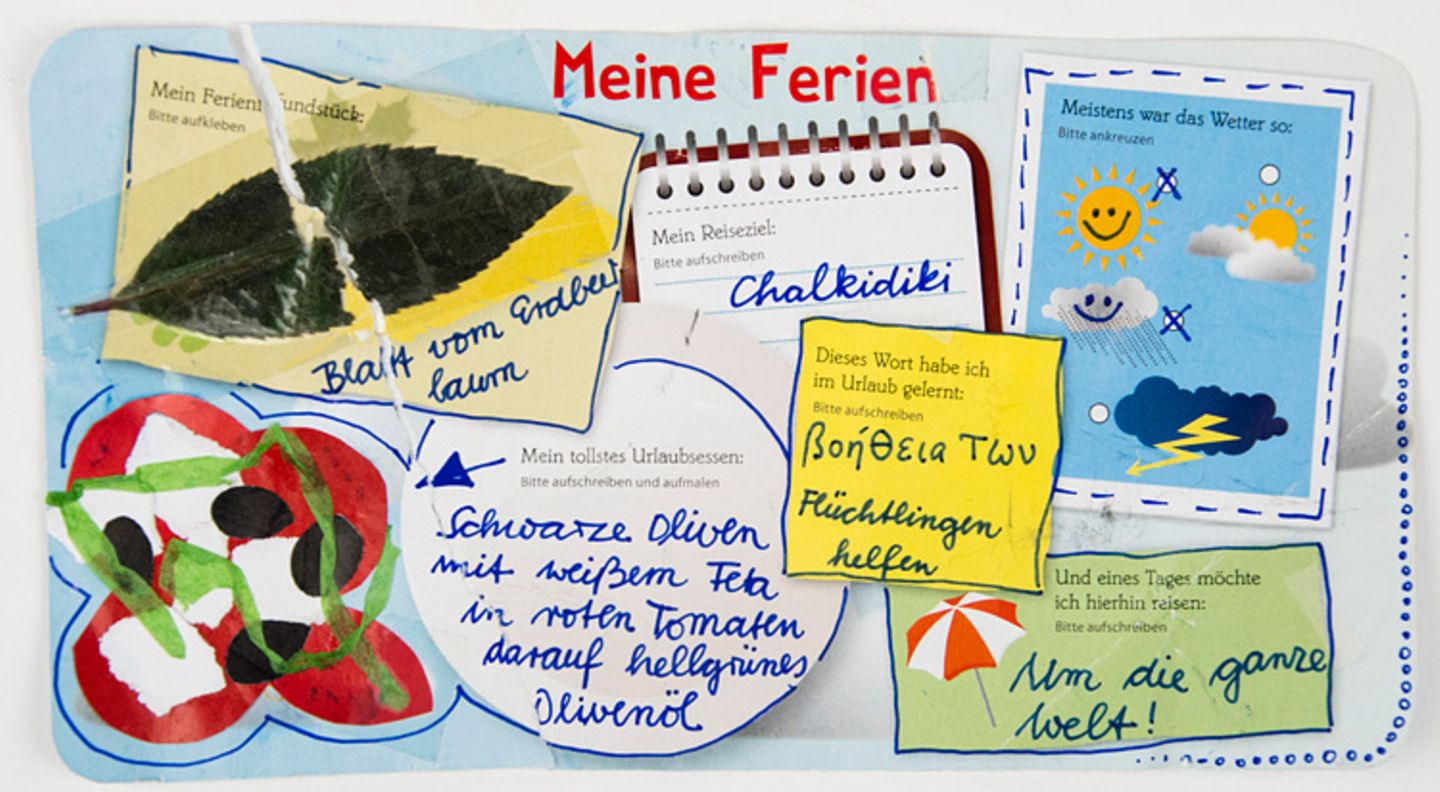 Meine Ferien
Mein Ferienfundstück:
Bitte aufkleben
Blatt vom Erdbeer
baum
Mein Reiseziel:
Bitte aufschreiben
Chalkidiki
Meistens war das Wetter so:
Bitte ankreuzen
Dieses Wort habe ich
im Urlaub gelernt:
Bitte aufschreiben
βοήθεια των
Flüchtlingen
helfen
Mein tollstes Urlaubsessen:
Bitte aufschreiben und aufmalen
Schwarze Oliven
mit weißem Feta
in roten Tomaten
darauf hellgrünes
Olivenöl
Und eines Tages möchte
ich hierhin reisen:
Bitte aufschreiben
Um die ganze
Welt!